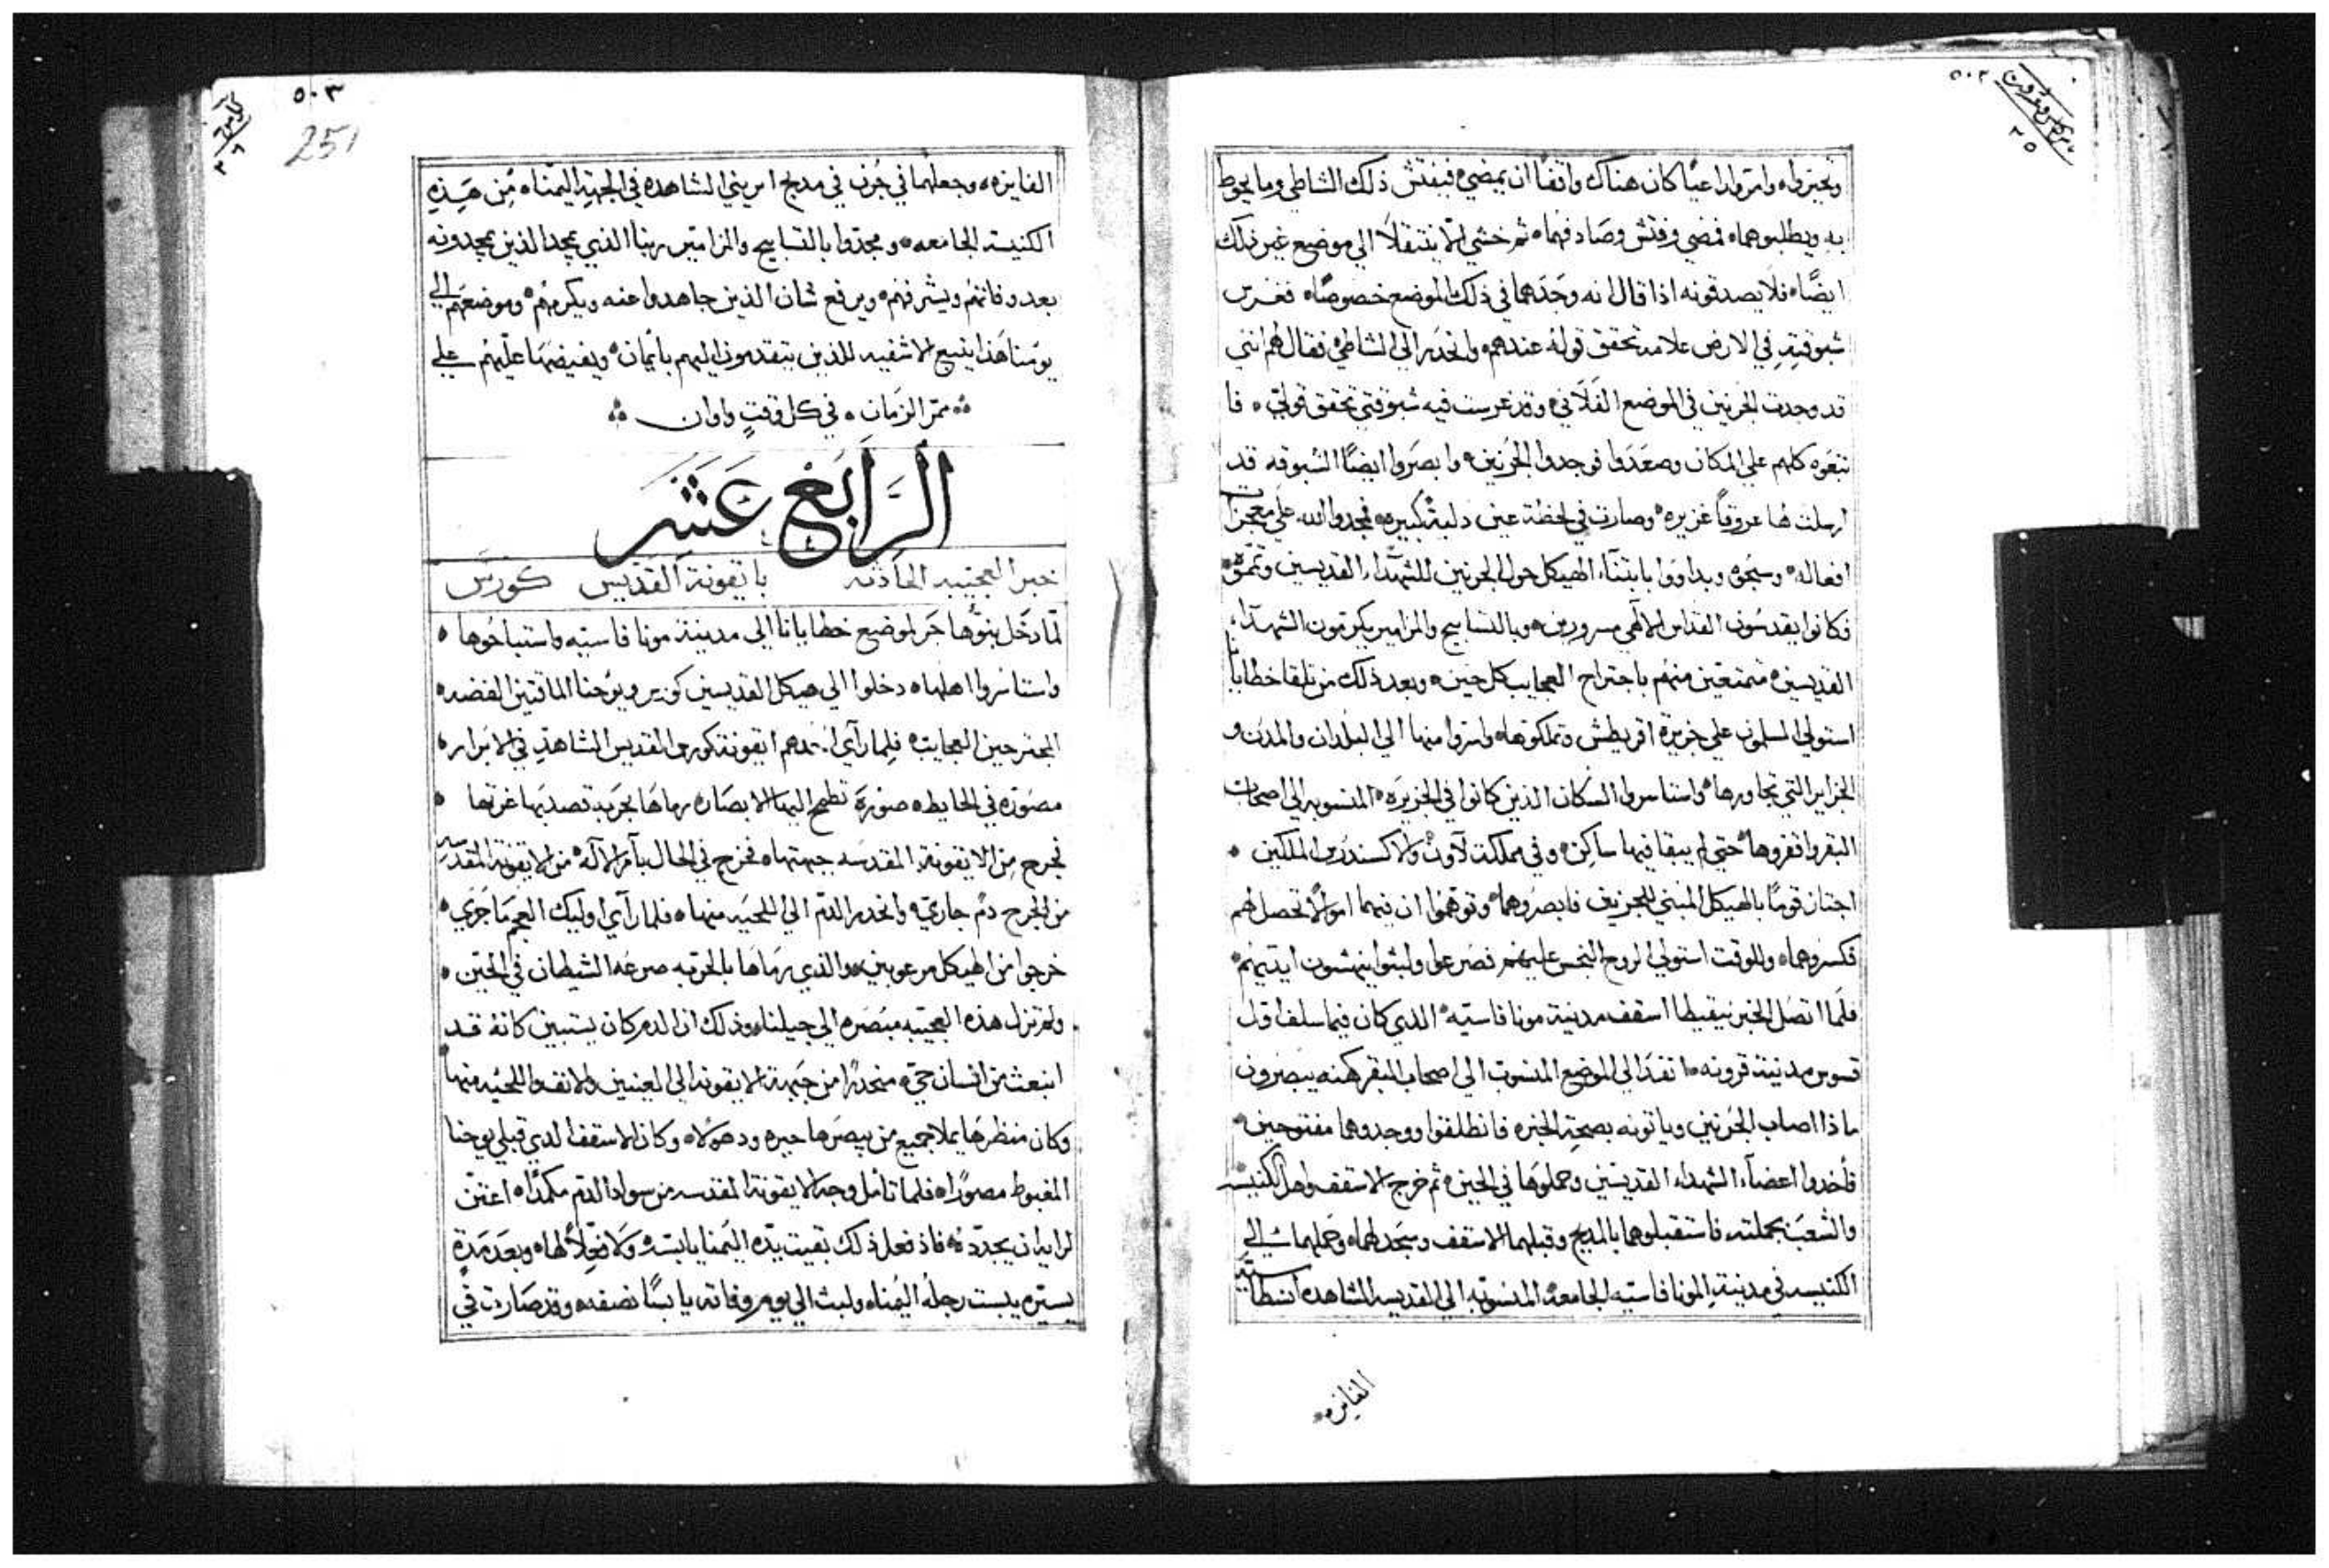 ٥٠٢
٢٥
وتحيروا، وامروا راعيًا كان هناك واقفًا ان يمضي، فيفتش ذلك الشاطي وما يحوط
به ويطلبوهما، فمضى وفتش وصادفهما، ثم خشي ليلا ينتقلا الي موضع غير ذلك
ايضًا، فلا يصدقونه اذا قال انه وجدهما في ذلك الموضع خصوصًا، فغرس
شبوقته في الارض علامه تحقق قوله عندهم، وانحدر الي الشاطي، فقال لهم انني
قد وجدت الجرنين في الموضع الفلاني، وقد غرست فيه شبوقتي تحقق قولي، فا
تبعوه كلهم علي المكان وصعدوا فوجدوا الجرنين، وابصروا ايضًا الشبوقه قد
ارسلت لها عروقًا غزيره، وصارت في لحظة عين دلبة كبيره، فمجدوا الله علي معجزات
افعاله، وسبحوه وبداووا بابتناء الهيكل حول الجرنين للشهداء القديسين وتمموه
فكانوا يقدسون القداس الالاهي مسرورين، وبالتسابيح والمزامير يكرمون الشهداء
القديسين، متمتعين منهم باجتراح العجايب كل حين، وبعد ذلك من تلقا خطايانا
استولي المسلمون علي جزيرة اقريطش وتملكوها، واسروا منها الي البلدان والمدن و
الجزاير التي تجاورها، واستاسروا السكان الذين كانوا في الجزيره المنسوبه الي اصحاب
البقر واقفروها، حتي لم يبقا فيها ساكن، وفي مملكة لاون والاكسندروس الملكين
اجتاز قومًا بالهيكل المبني للجرنين فابصروهما، وتوهموا ان فيهما اموالًا تحصل لهم
فكسروهما، وللوقت استولي الروح النجس عليهم فصرعوا ولبثوا ينهشون ايديهم
فلما اتصل الخبر بنيقيطا اسقف مدينة مونافاسيه، الذي كان فيما سلف اول
قسوس مدينة قرونه، انفذ الي الموضع المنسوب الي اصحاب البقر كهنه يبصرون
ماذا اصاب الجرنين وياتونه بصحة الخبر، فانطلقوا ووجدوهما مفتوحين
فأخدوا اعضآء الشهداء القديسين وحملوها في الحين، ثم خرج الاسقف واهل الكنيسه
والشعب بجملته، فاستقبلوهما بالمديح وقبلهما الاسقف وسجد لهما، وحملهما الي
الكنيسه في مدينة المونافاسيه الجامعه المنسوبه الي القديسه الشاهده انسطاسيه
الفايزه
٥٠٣
251
٢٦
الفايزه، وجعلهما في جرن في مذبح ايريني الشاهده في الجهة اليمناه من هذه
الكنيسه الجامعه، ومجدوا بالتسابيح والمزامير ربنا الذي يمجد الذين يمجدونه
بعد وفاتهم ويشرفهم، ويرفع شان الذين جاهدوا عنه ويكرمهم، وموضعهم الي
يومنا هذا ينبع الاشفيه للذين يتقدمون اليهم بأيمان، ويفيضها عليهم علي
ممر الزمان، في كل وقتٍ واوان
الرابع عشر
خبر العجيبه الحادثه بايقونة القديس كورس
لما دخل بنوها جر لموضع خطايانا الي مدينة مونافاسيه واستباحوها،
واستاسروا اهلها، دخلوا الي هيكل القديسين كورس ويوحنا الماقتين الفضه
المجترحين العجايب، فلما رآي احدهم ايقونة كورس القديس الشاهد في الابرار،
مصوره في الحايط، صورة تطمح اليها الابصار، رماها بحربة قصد بها غرتها،
فجرح من الايقونة المقدسه جبهتها، فخرج في الحال بأمر الاله، من الايقونة المقدسه
من الجرح دم جاري، وانحدر الدم الي اللحيه منها، فلما رآي اوليك العجم ما جري،
خرجوا من الهيكل مرعوبين، والذي رماها بالحربه صرعه الشيطان في الحين،
ولم تزل هذه العجيبه مبصره الي جيلنا، وذلك ان الدم كان يستبين كانه قد
انبعث من انسان حي، منحدرًا من جبهة الايقونه الي العينين والانف واللحيه منها
وكان منظرها يملا جميع من يبصرها حيره ودهولا، وكان الاسقف الدي قبلي يوحنا
المغبوط مصورًا، فلما تامل وجه الايقونة المقدسه من سواد الدم مكمدًا، اعتن
لرايه ان يجدده، فاذ فعل ذلك بقيت يده اليمنا يابسه، ولا فعلًا لها، وبعد مدة
يسيره يبست رجله اليمنا، ولبث الي يوم وفاته يابسًا نصفه، وقد صارت في